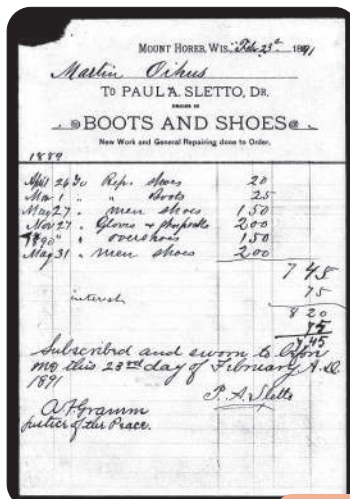 MOUNT HOREB, WIS. Feb. 23d 1891
Martin
TO PAUL A. SLETTO, DR.
DEALER IN
BOOTS AND SHOES
New Work and General Repairing done to Order.
1889
April 26 To Rep. shoes 20
May 1 " " Boots 25
May 27 " men shoes 1 50
Nov 27 " Gloves + 2 00
1890 " " overshoes 1 50
May 31 " men shoes 2 00
7 45
interest 75
8 20
75
7 45
Subscribed and sworn to before
me this 23rd day of February A.D.
1891
P. A. Sletto
A F Gramm
Justice of the Peace.